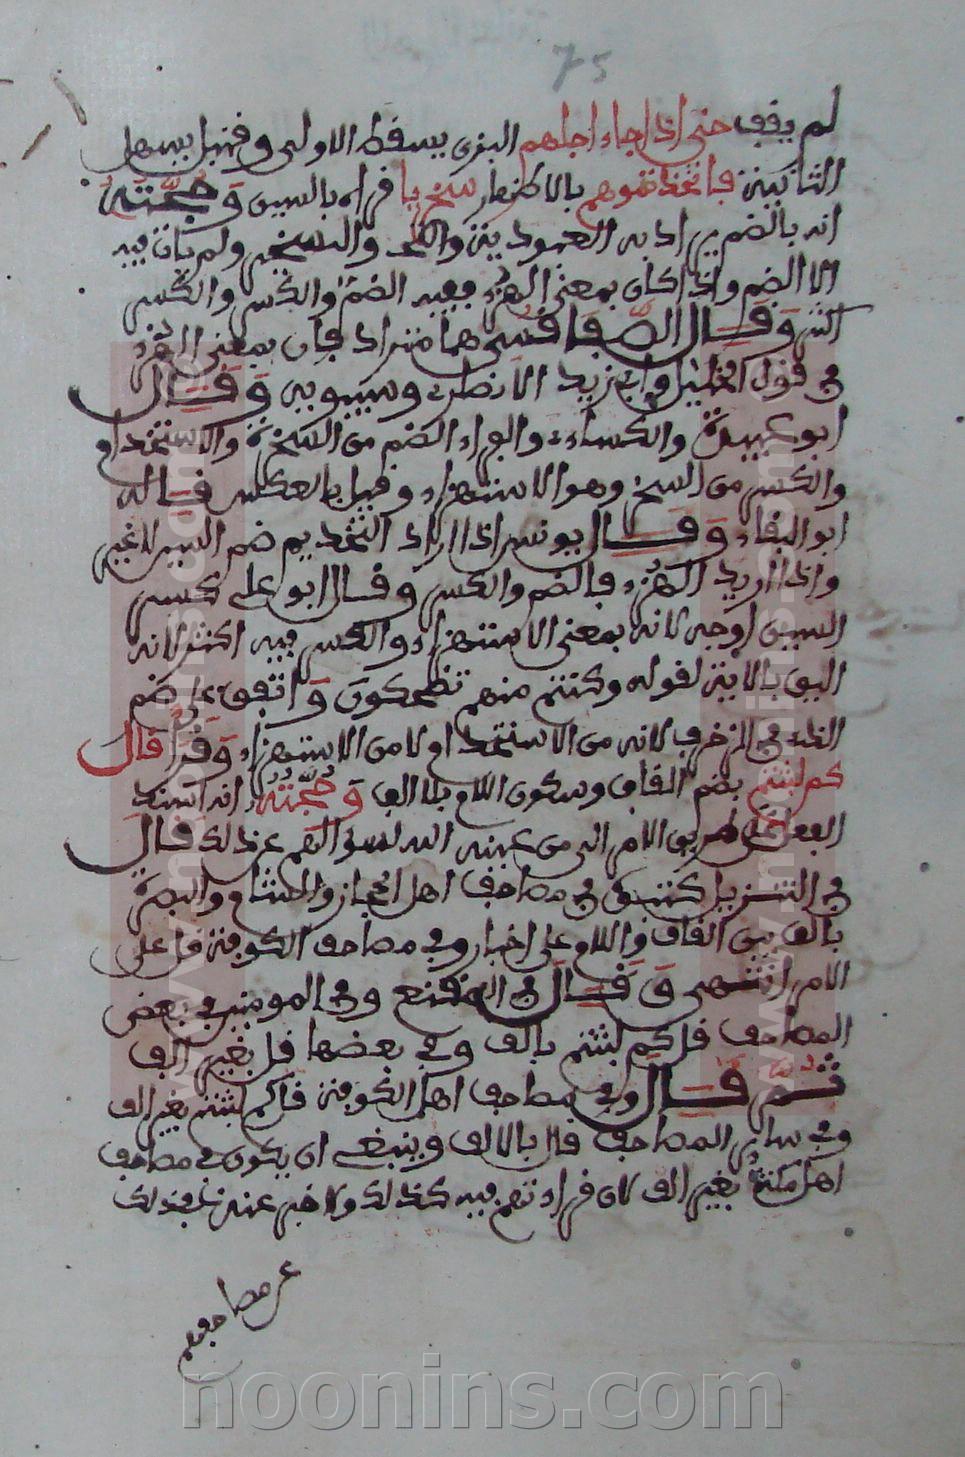 75
لم يقف حتى اذا جاء اجلهم البزى يسقط الاولى وقنبل يسهل
الثانية فاتخذتموهم بالاظهار سخريا قراه بالسين وحجته
انه بالضم يراد به العبودية والتسخير ولم يات فيه
الا الضم واذا كان بمعنى الهزء ففيه الضم والكسر والكسر
اكثر وقال الصفاقسي هما مترادفان بمعنى الهزء
في قول الخليل وابي زيد الانصاري وسيبويه وقال
ابو عبيدة والكساءي والفراء الضم من السخرة والاستخدام
والكسر من السخر وهو الاستهزاء وقيل بالعكس قاله
ابو البقاء وقال يونس اذا اراد التخديم ضم السين لا غير
واذا اريد الهزء فالضم والكسر وقال ابو علي كسر
السين اوجه لانه بمعنى الاستهزاء والكسر فيه اكثر لانه
اليق بالاية لقوله وكنتم منهم تضحكون واتفق على ضم
الذي في الزخرف لانه من الاستخدام لا من الاستهزاء وقرا قال
كم لبثتم بضم القاف وسكون اللام بلا الف وحجته انه اسند
الفعل على طريق الامر الى من عينه الله لسؤالهم عن ذلك قال
في التنزيل كتبوا في مصاحف اهل الحجاز والشام والبصرة
بالف بين القاف واللام على اخبار وفي مصاحف الكوفة قل على
الامر انتهى وقال في المقنع وفي المومنين في بعض
المصاحف قل كم لبثتم بالف وفي بعضها قل بغير الف
ثم قال وفي مصاحف اهل الكوفة قل كم لبثتم بغير الف
وفي ساير المصاحف قال بالالف وينبغي ان يكون في مصاحف
اهل مكة بغير الف لان قراءتهم فيه كذلك ولا خبر عندنا في ذلك
عن مصاحفهم
noonins.com
www.noonins.com
www.noonins.com